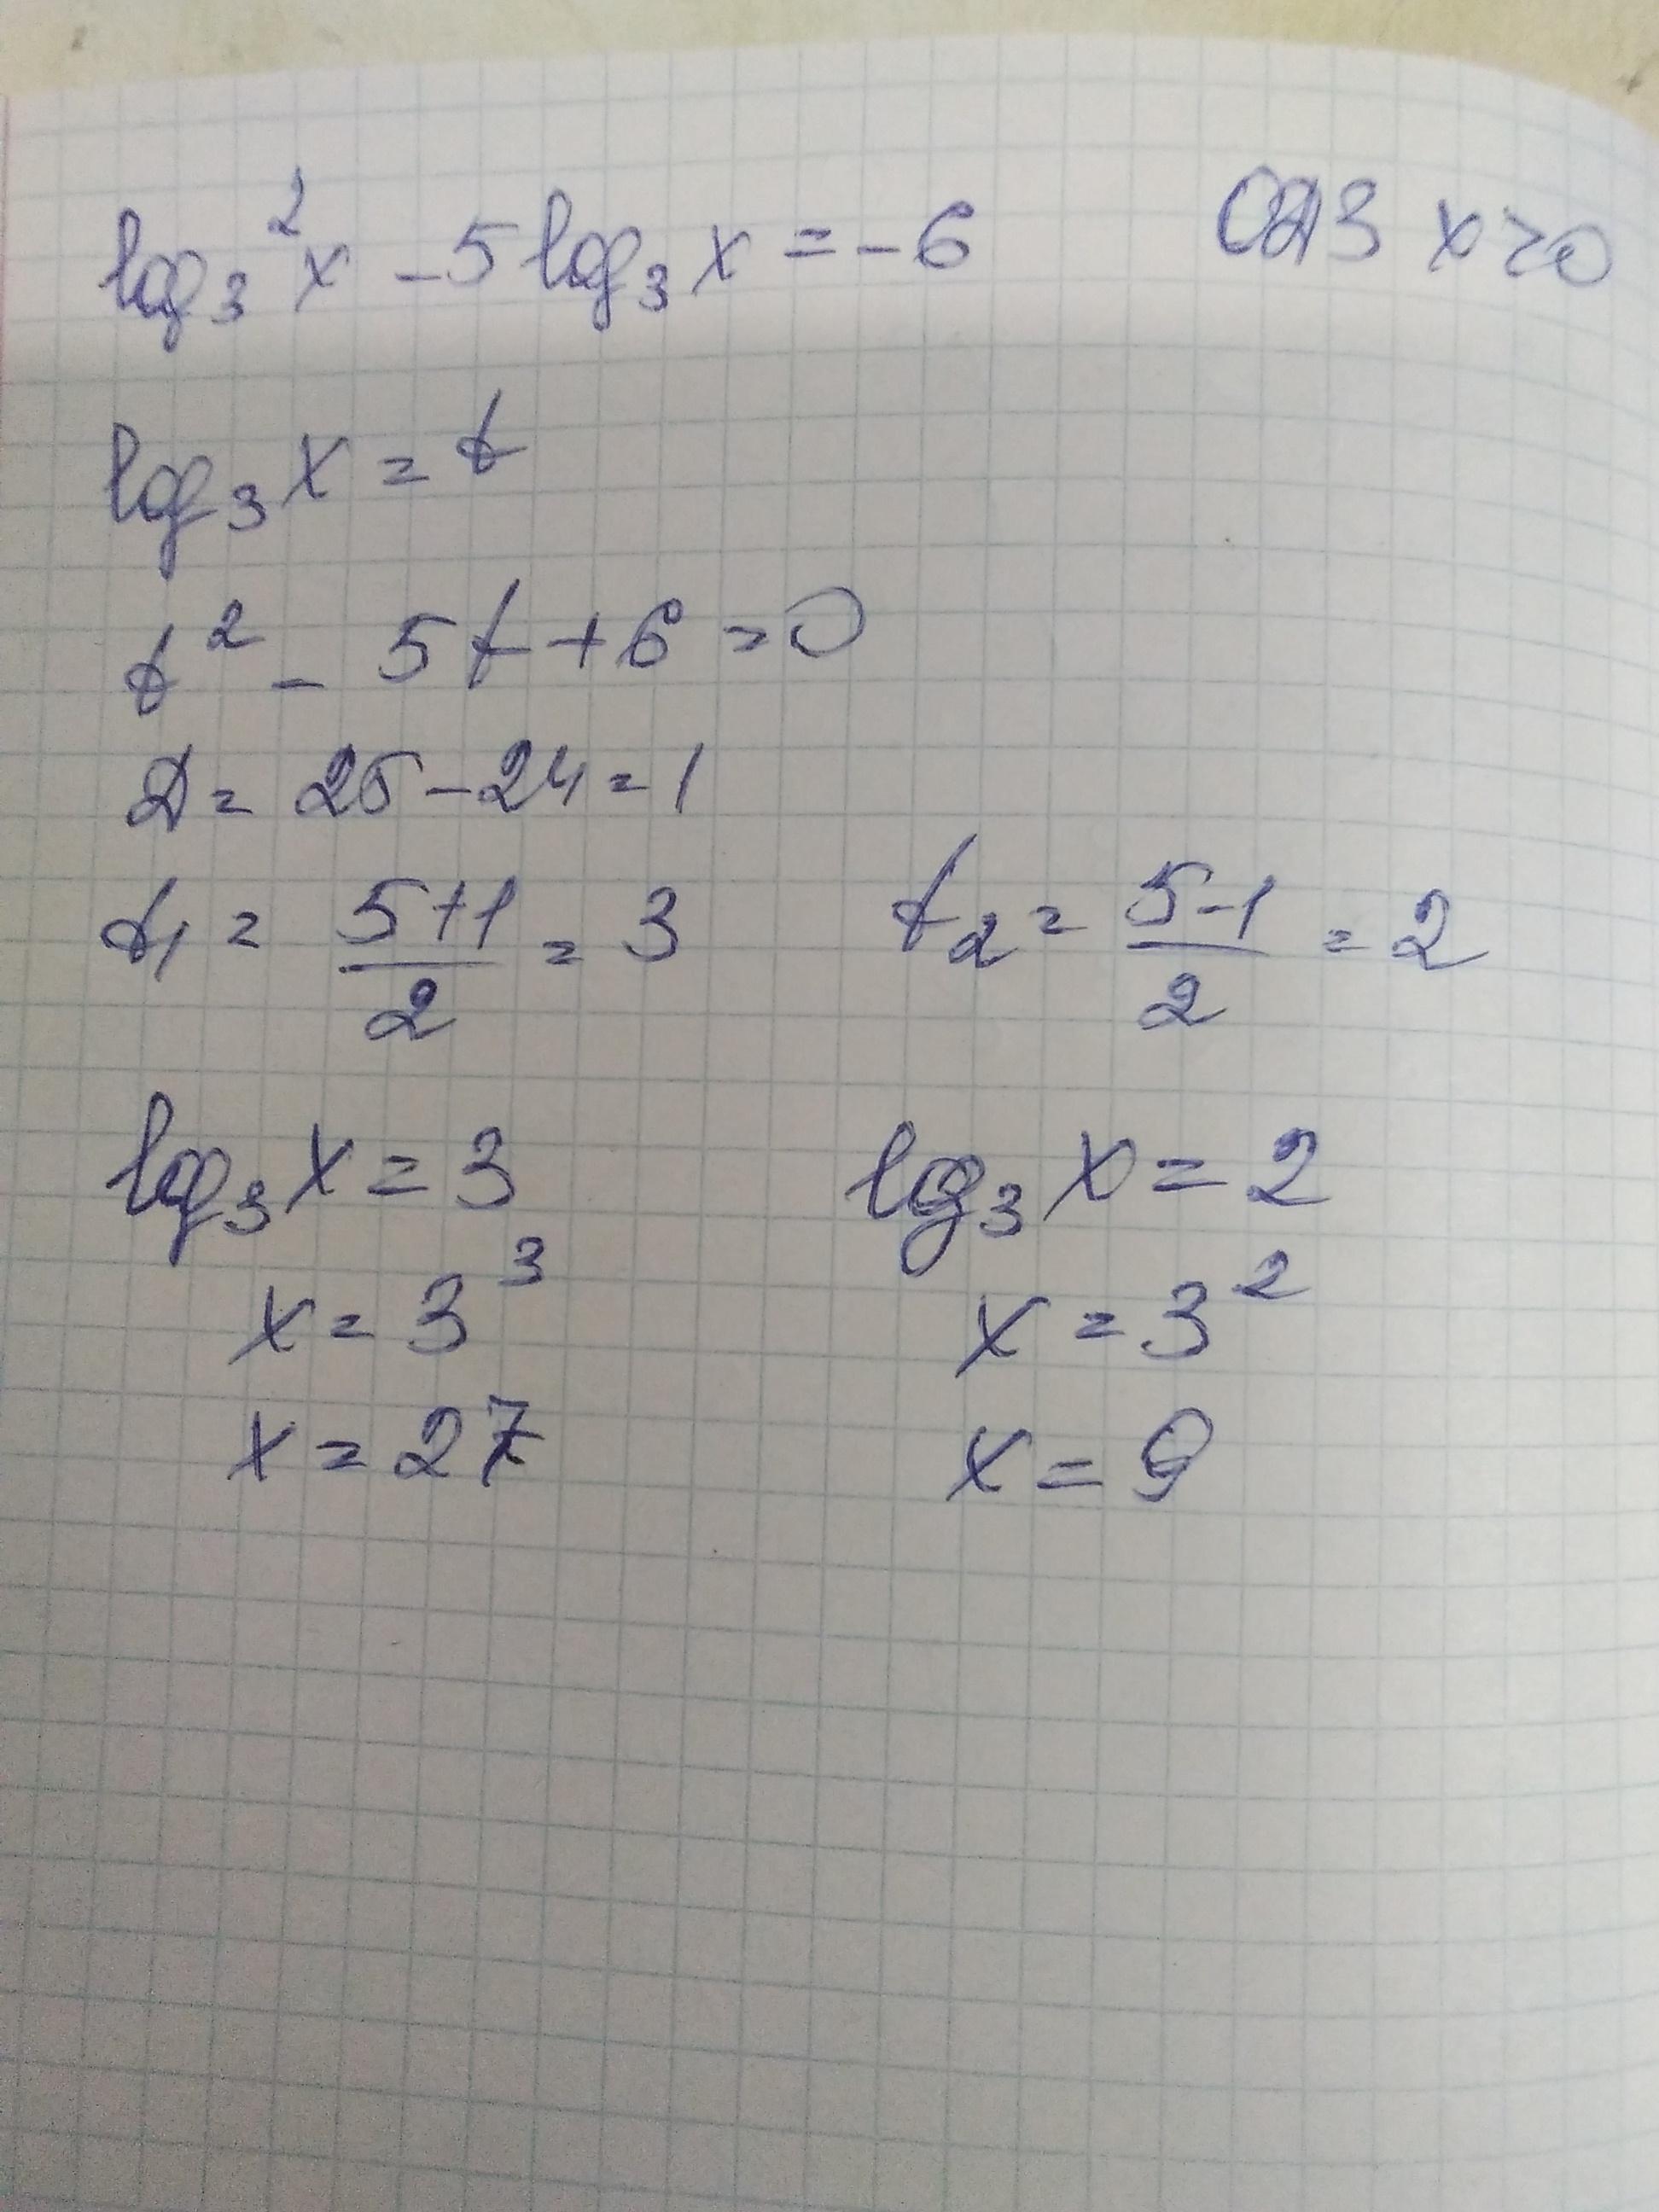 log₃²x - 5log₃x = -6 ОДЗ x>0
log₃x = t
t² - 5t + 6 = 0
D = 25 - 24 = 1
t₁ = (5+1)/2 = 3 t₂ = (5-1)/2 = 2
log₃x = 3 log₃x = 2
x = 3³ x = 3²
x = 27 x = 9